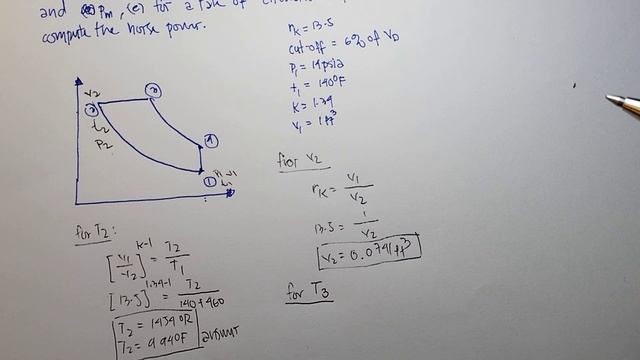 and (d) Pm, (e) for a rate of
compute the horse power.
rk = 13.5
cut-off = 6% of VD
P1 = 14psia
t1 = 140°F
K = 1.34
V1 = 1ft³
V2
②
t2
P2
③
④
①
P1 V1
t1
for V2
rK = V1/V2
13.5 = 1/V2
V2 = 0.0741ft³
for T3
for T2:
[V1/V2]^K-1 = T2/T1
[13.5]^1.34-1 = T2/140+460
T2 = 1454°R
T2 = 994°F
answer